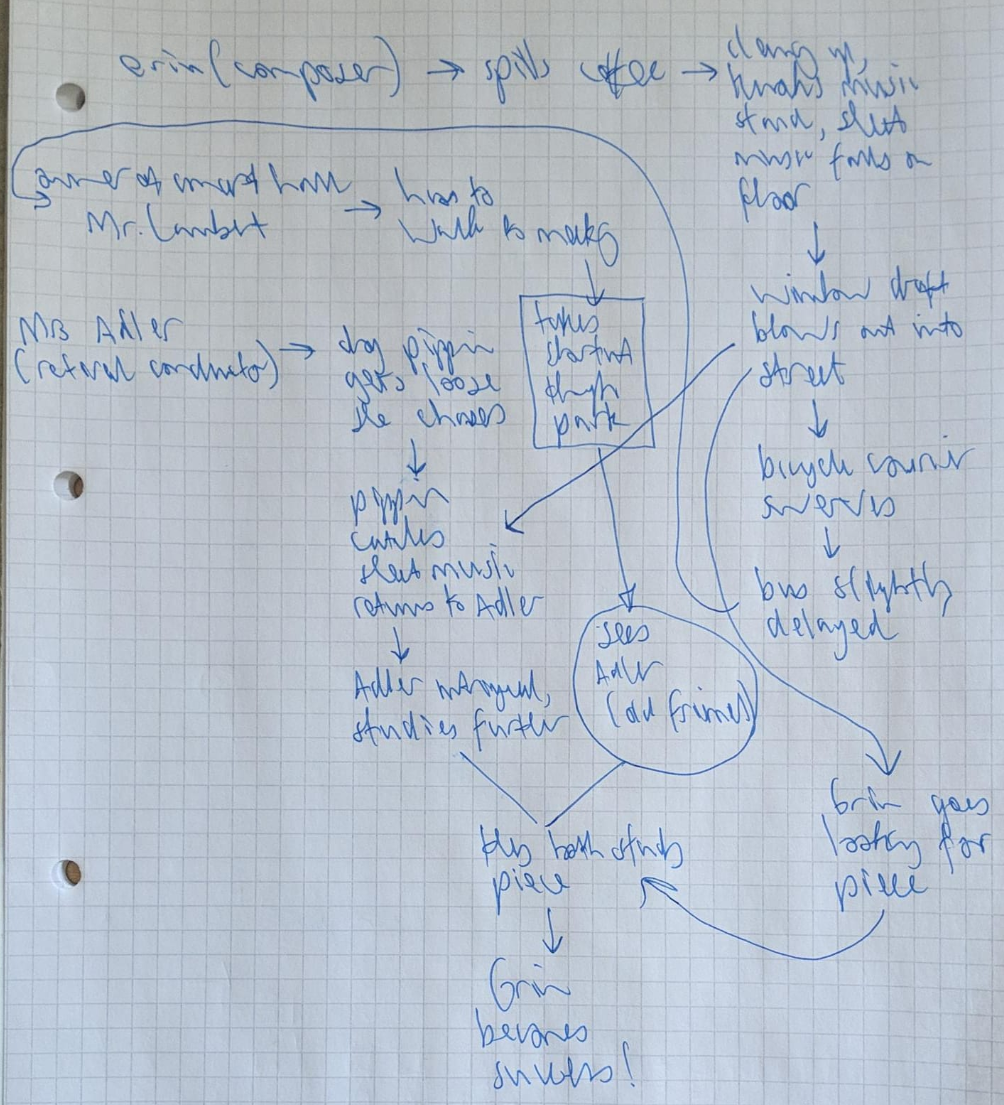 Erin (composer) → spills coffee →
cleaning up,
knocks music
stand, sheet
music falls on
floor
↓
window draft
blows out into
street
↓
bicycle courier
swerves
↓
bus slightly
delayed
owner of concert hall
Mr. Lambert
→ has to
walk to meeting
↓
takes
shortcut
through
park
sees
Adler
(old friends)
Mrs Adler
(retired conductor) →
dog pippin
gets loose
she chases
↓
pippin
catches
sheet music
returns to Adler
↓
Adler intrigued,
studies further
Erin goes
looking for
piece
they both study
piece
↓
Erin
becomes
success!